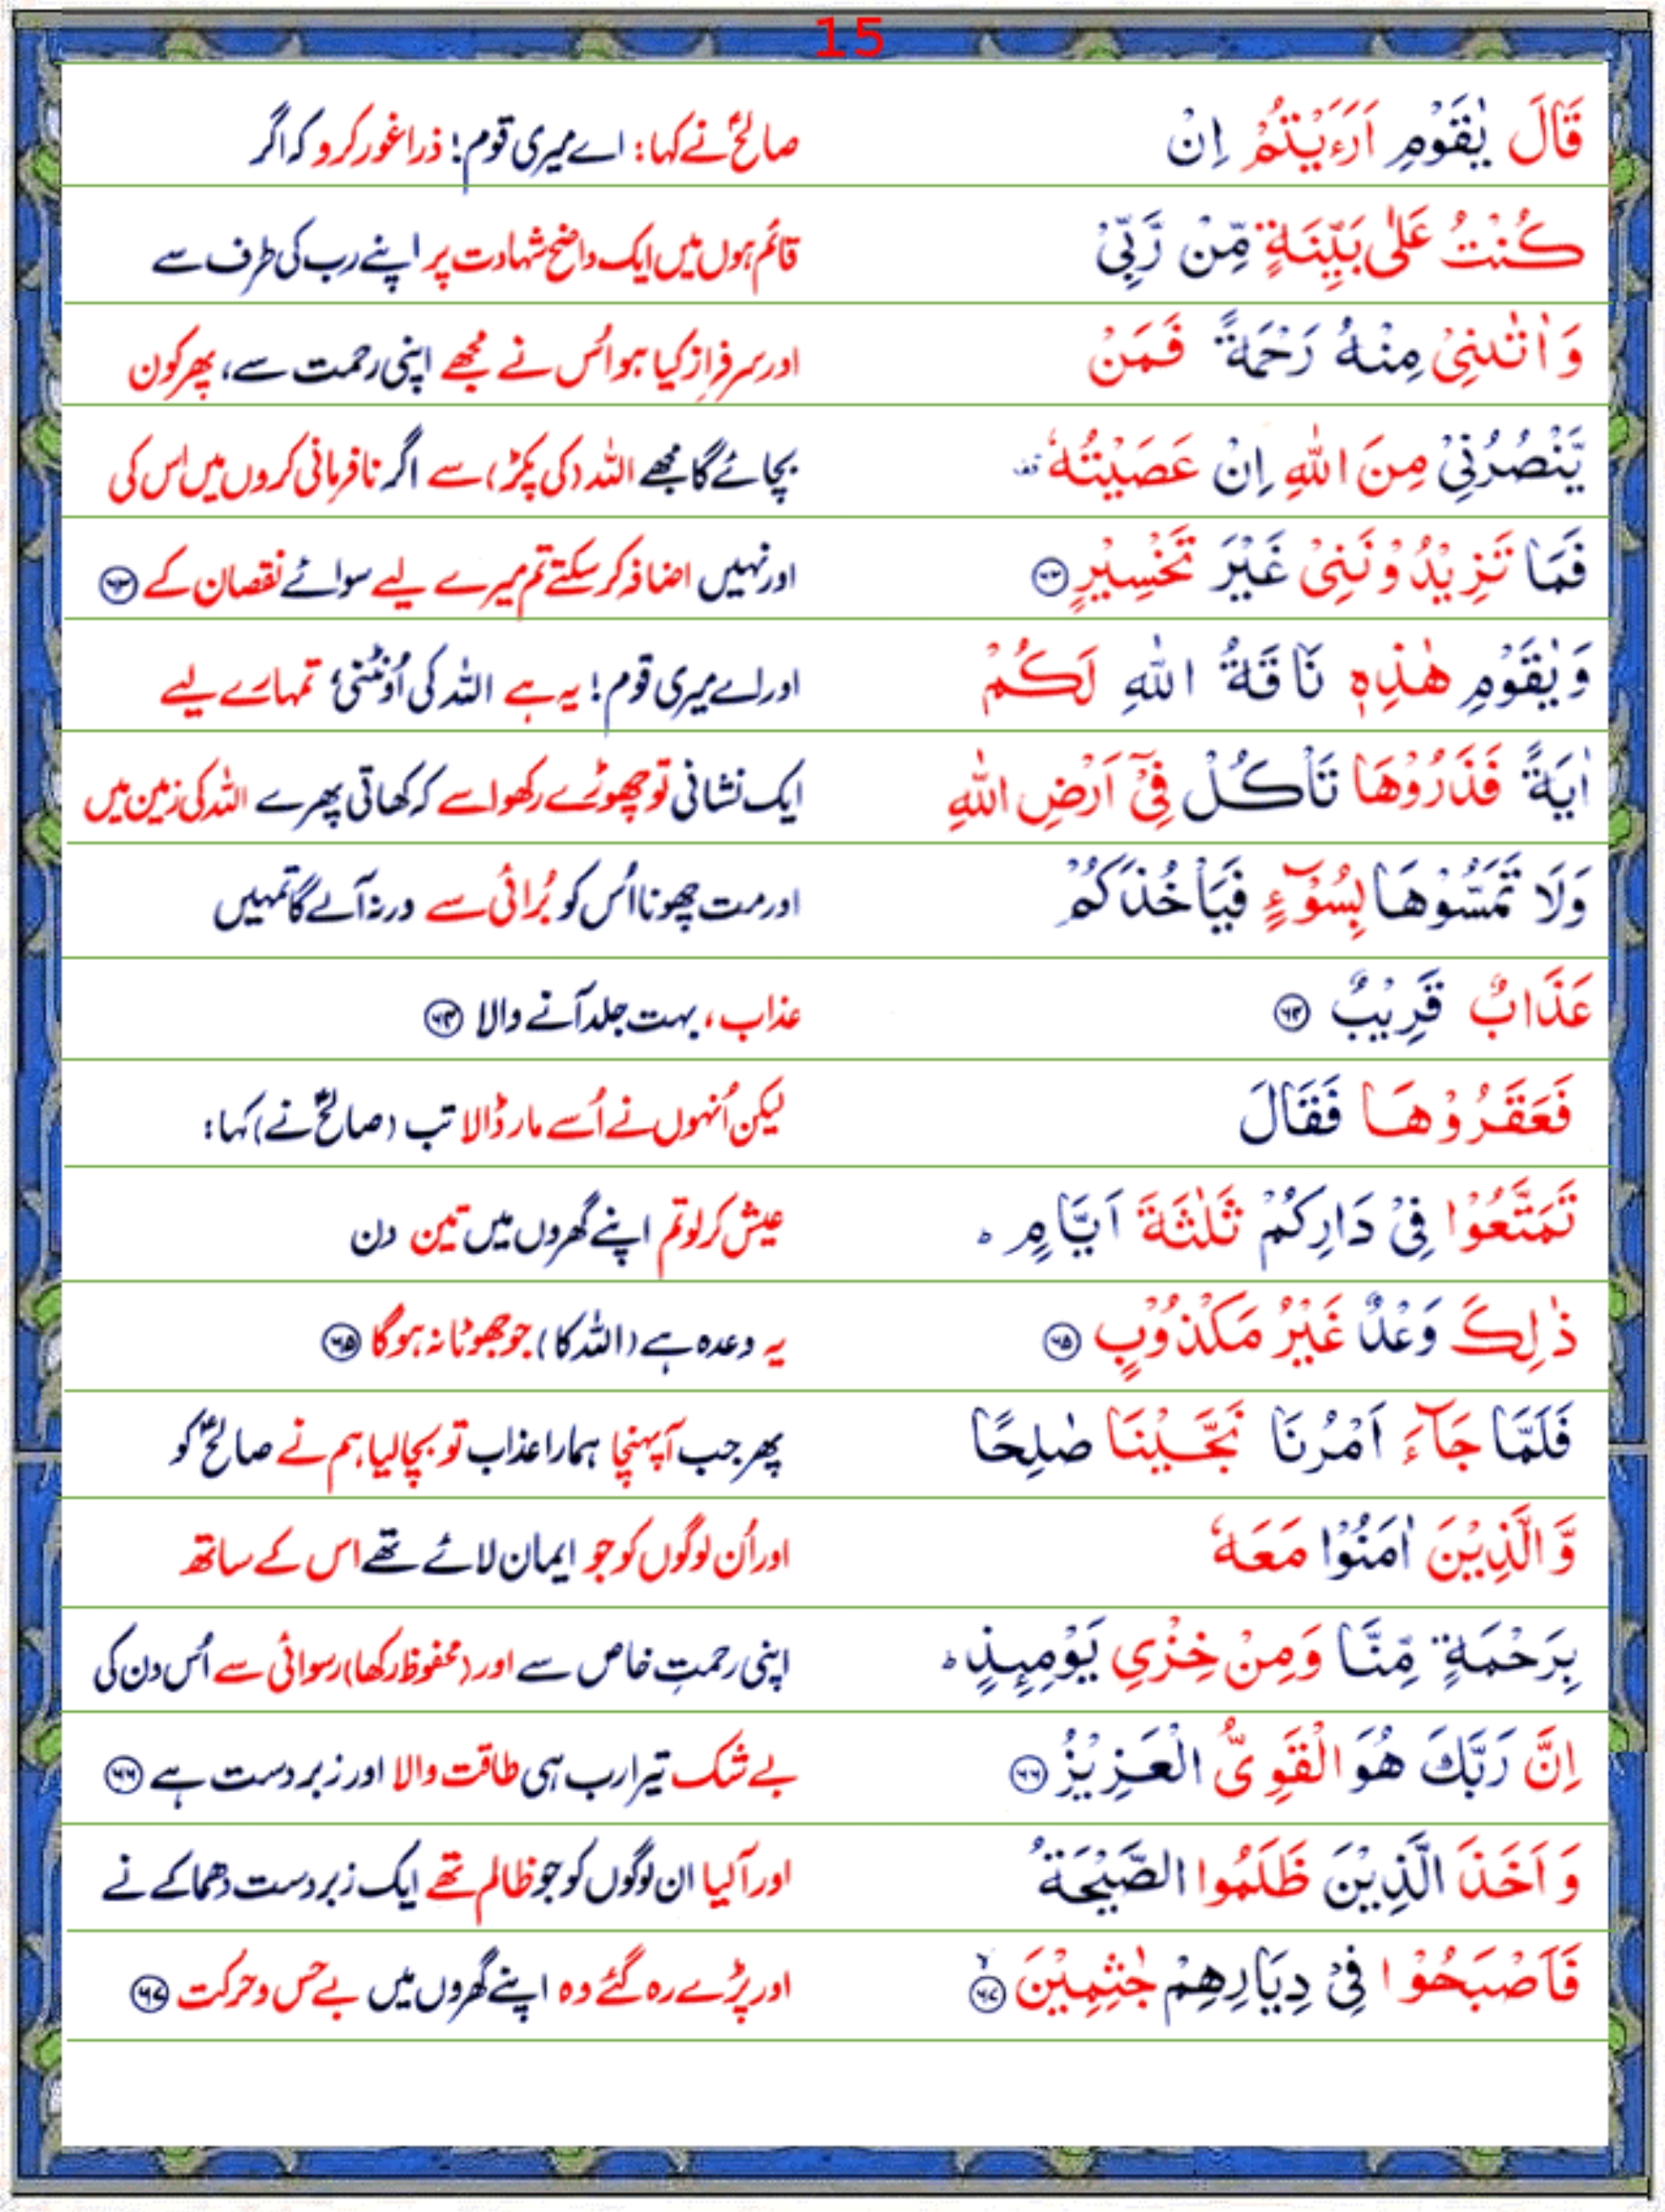 15
قَالَ يٰقَوْمِ اَرَءَيْتُمْ اِنْ
صالحؑ نے کہا: اے میری قوم! ذرا غور کرو کہ اگر
كُنْتُ عَلٰى بَيِّنَةٍ مِّنْ رَّبِّيْ
قائم ہوں میں ایک واضح شہادت پر اپنے رب کی طرف سے
وَاٰتٰىنِيْ مِنْهُ رَحْمَةً فَمَنْ
اور سرفراز کیا ہو اُس نے مجھے اپنی رحمت سے، پھر کون
يَّنْصُرُنِيْ مِنَ اللّٰهِ اِنْ عَصَيْتُهٗ ۫قف
بچائے گا مجھے اللہ (کی پکڑ) سے اگر نافرمانی کروں میں اس کی
فَمَا تَزِيْدُوْنَنِيْ غَيْرَ تَخْسِيْرٍ ۝۶۳
اور نہیں اضافہ کر سکتے تم میرے لیے سوائے نقصان کے ۝۶۳
وَيٰقَوْمِ هٰذِهٖ نَاقَةُ اللّٰهِ لَكُمْ
اور اے میری قوم! یہ ہے اللہ کی اُونٹنی، تمہارے لیے
اٰيَةً فَذَرُوْهَا تَاْكُلْ فِيْٓ اَرْضِ اللّٰهِ
ایک نشانی تو چھوڑے رکھو اسے کہ کھاتی پھرے اللہ کی زمین میں
وَلَا تَمَسُّوْهَا بِسُوْٓءٍ فَيَاْخُذَكُمْ
اور مت چھونا اُس کو بُرائی سے ورنہ آلے گا تمہیں
عَذَابٌ قَرِيْبٌ ۝۶۴
عذاب، بہت جلد آنے والا ۝۶۴
فَعَقَرُوْهَا فَقَالَ
لیکن اُنہوں نے اُسے مار ڈالا تب (صالحؑ نے) کہا:
تَمَتَّعُوْا فِيْ دَارِكُمْ ثَلٰثَةَ اَيَّامٍ ؕ
عیش کر لو تم اپنے گھروں میں تین دن
ذٰلِكَ وَعْدٌ غَيْرُ مَكْذُوْبٍ ۝۶۵
یہ وعدہ ہے (اللہ کا) جو جھوٹا نہ ہوگا ۝۶۵
فَلَمَّا جَآءَ اَمْرُنَا نَجَّيْنَا صٰلِحًا
پھر جب آپہنچا ہمارا عذاب تو بچا لیا ہم نے صالحؑ کو
وَّالَّذِيْنَ اٰمَنُوْا مَعَهٗ
اور اُن لوگوں کو جو ایمان لائے تھے اس کے ساتھ
بِرَحْمَةٍ مِّنَّا وَمِنْ خِزْيِ يَوْمِئِذٍ ؕ
اپنی رحمتِ خاص سے اور (محفوظ رکھا) رسوائی سے اُس دن کی
اِنَّ رَبَّكَ هُوَ الْقَوِيُّ الْعَزِيْزُ ۝۶۶
بے شک تیرا رب ہی طاقت والا اور زبردست ہے ۝۶۶
وَاَخَذَ الَّذِيْنَ ظَلَمُوا الصَّيْحَةُ
اور آلیا ان لوگوں کو جو ظالم تھے ایک زبردست دھماکے نے
فَاَصْبَحُوْا فِيْ دِيَارِهِمْ جٰثِمِيْنَ ۝۶۷ لا
اور پڑے رہ گئے وہ اپنے گھروں میں بے حس و حرکت ۝۶۷